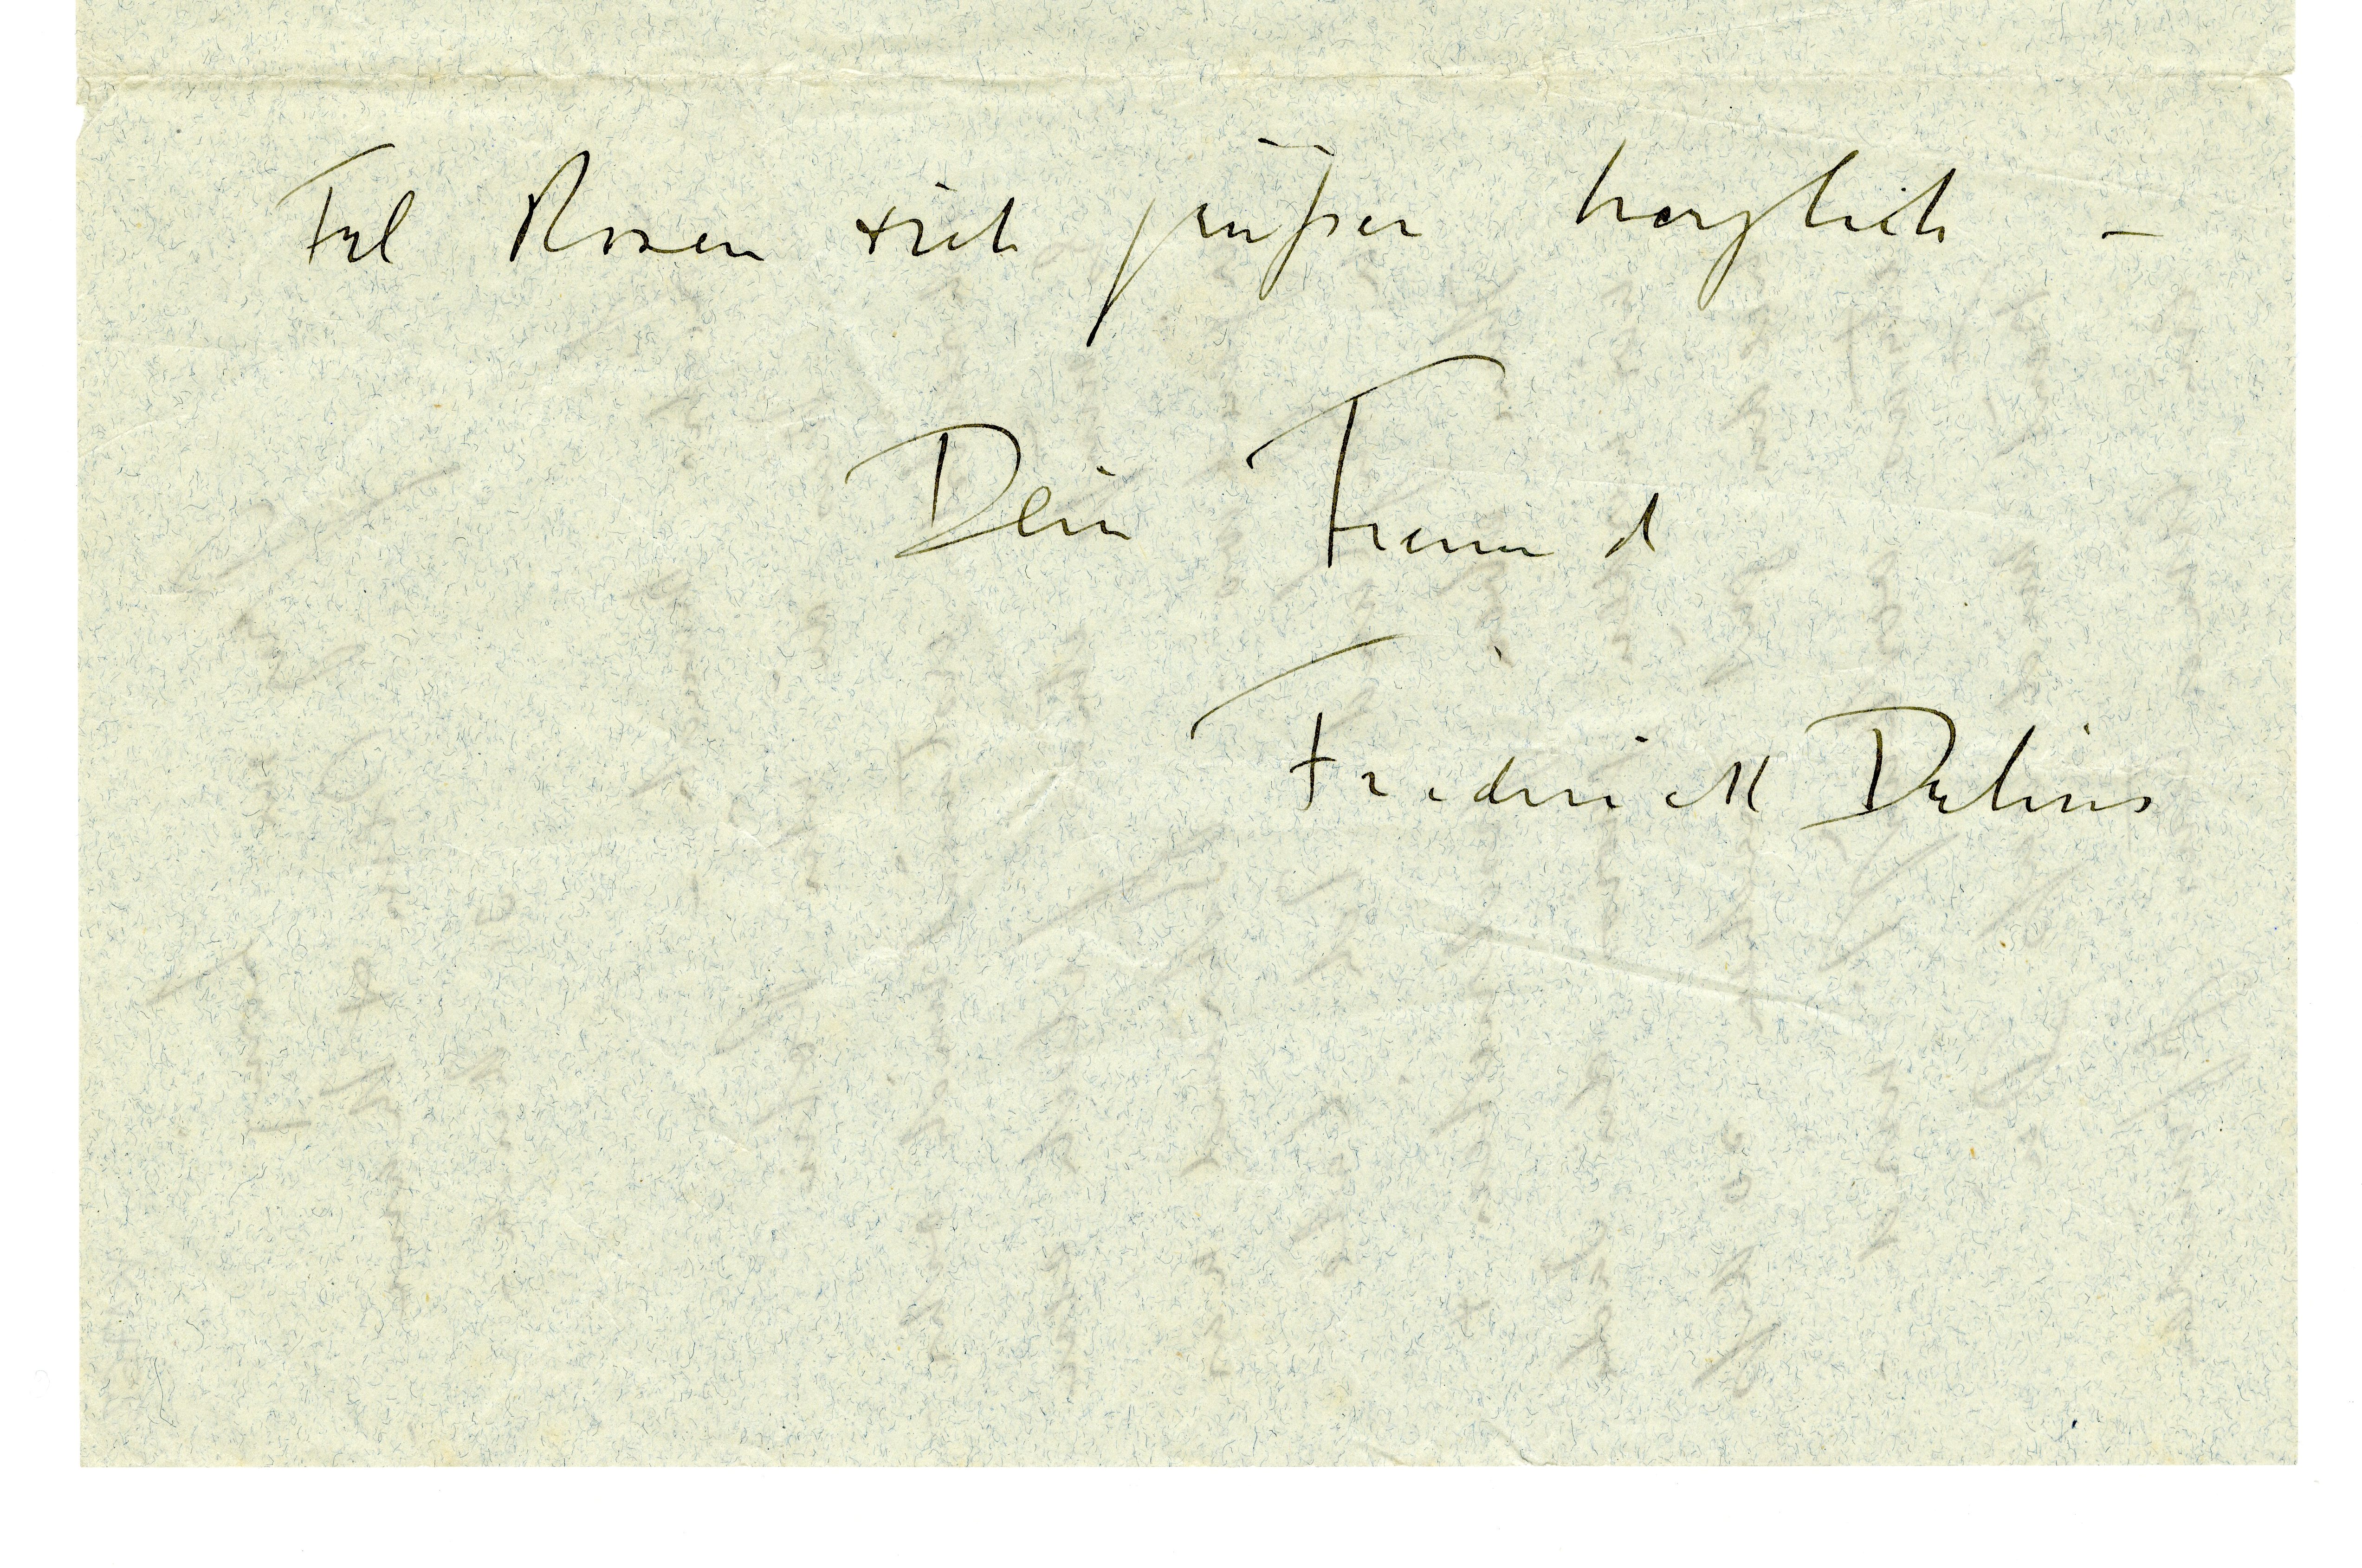 Frl Rosen + ich grüßen herzlich –
Dein Freund
Frederick Delius